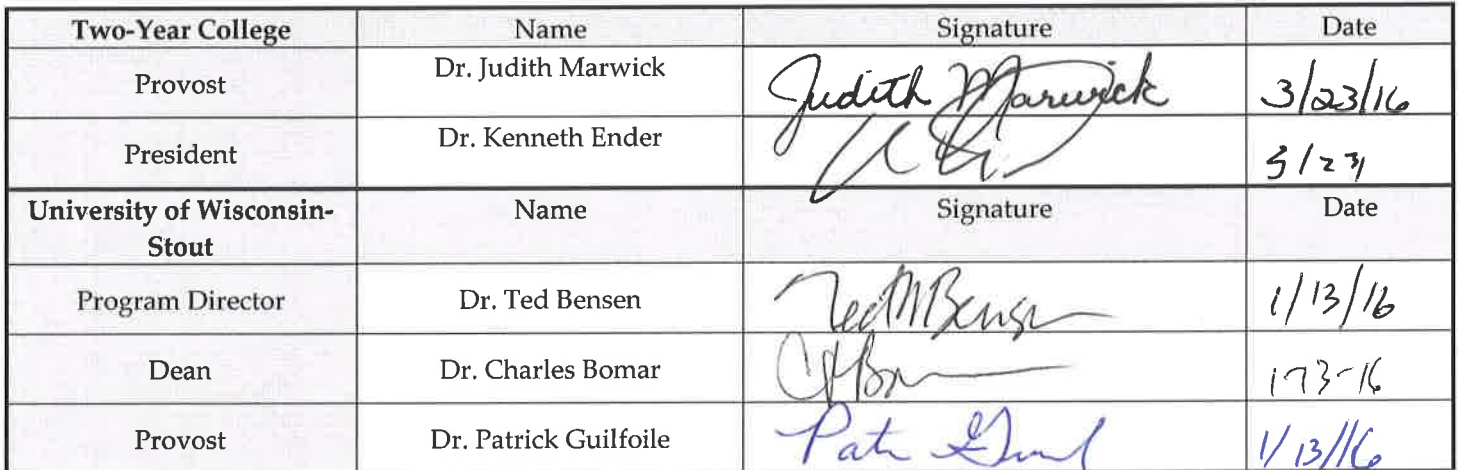 Two-Year College Name Signature Date
Provost Dr. Judith Marwick Judith Marwick 3/23/16
President Dr. Kenneth Ender 3/23
University of Wisconsin- Name Signature Date
Stout
Program Director Dr. Ted Bensen Ted M Bensen 1/13/16
Dean Dr. Charles Bomar 1-13-16
Provost Dr. Patrick Guilfoile 1/13/16